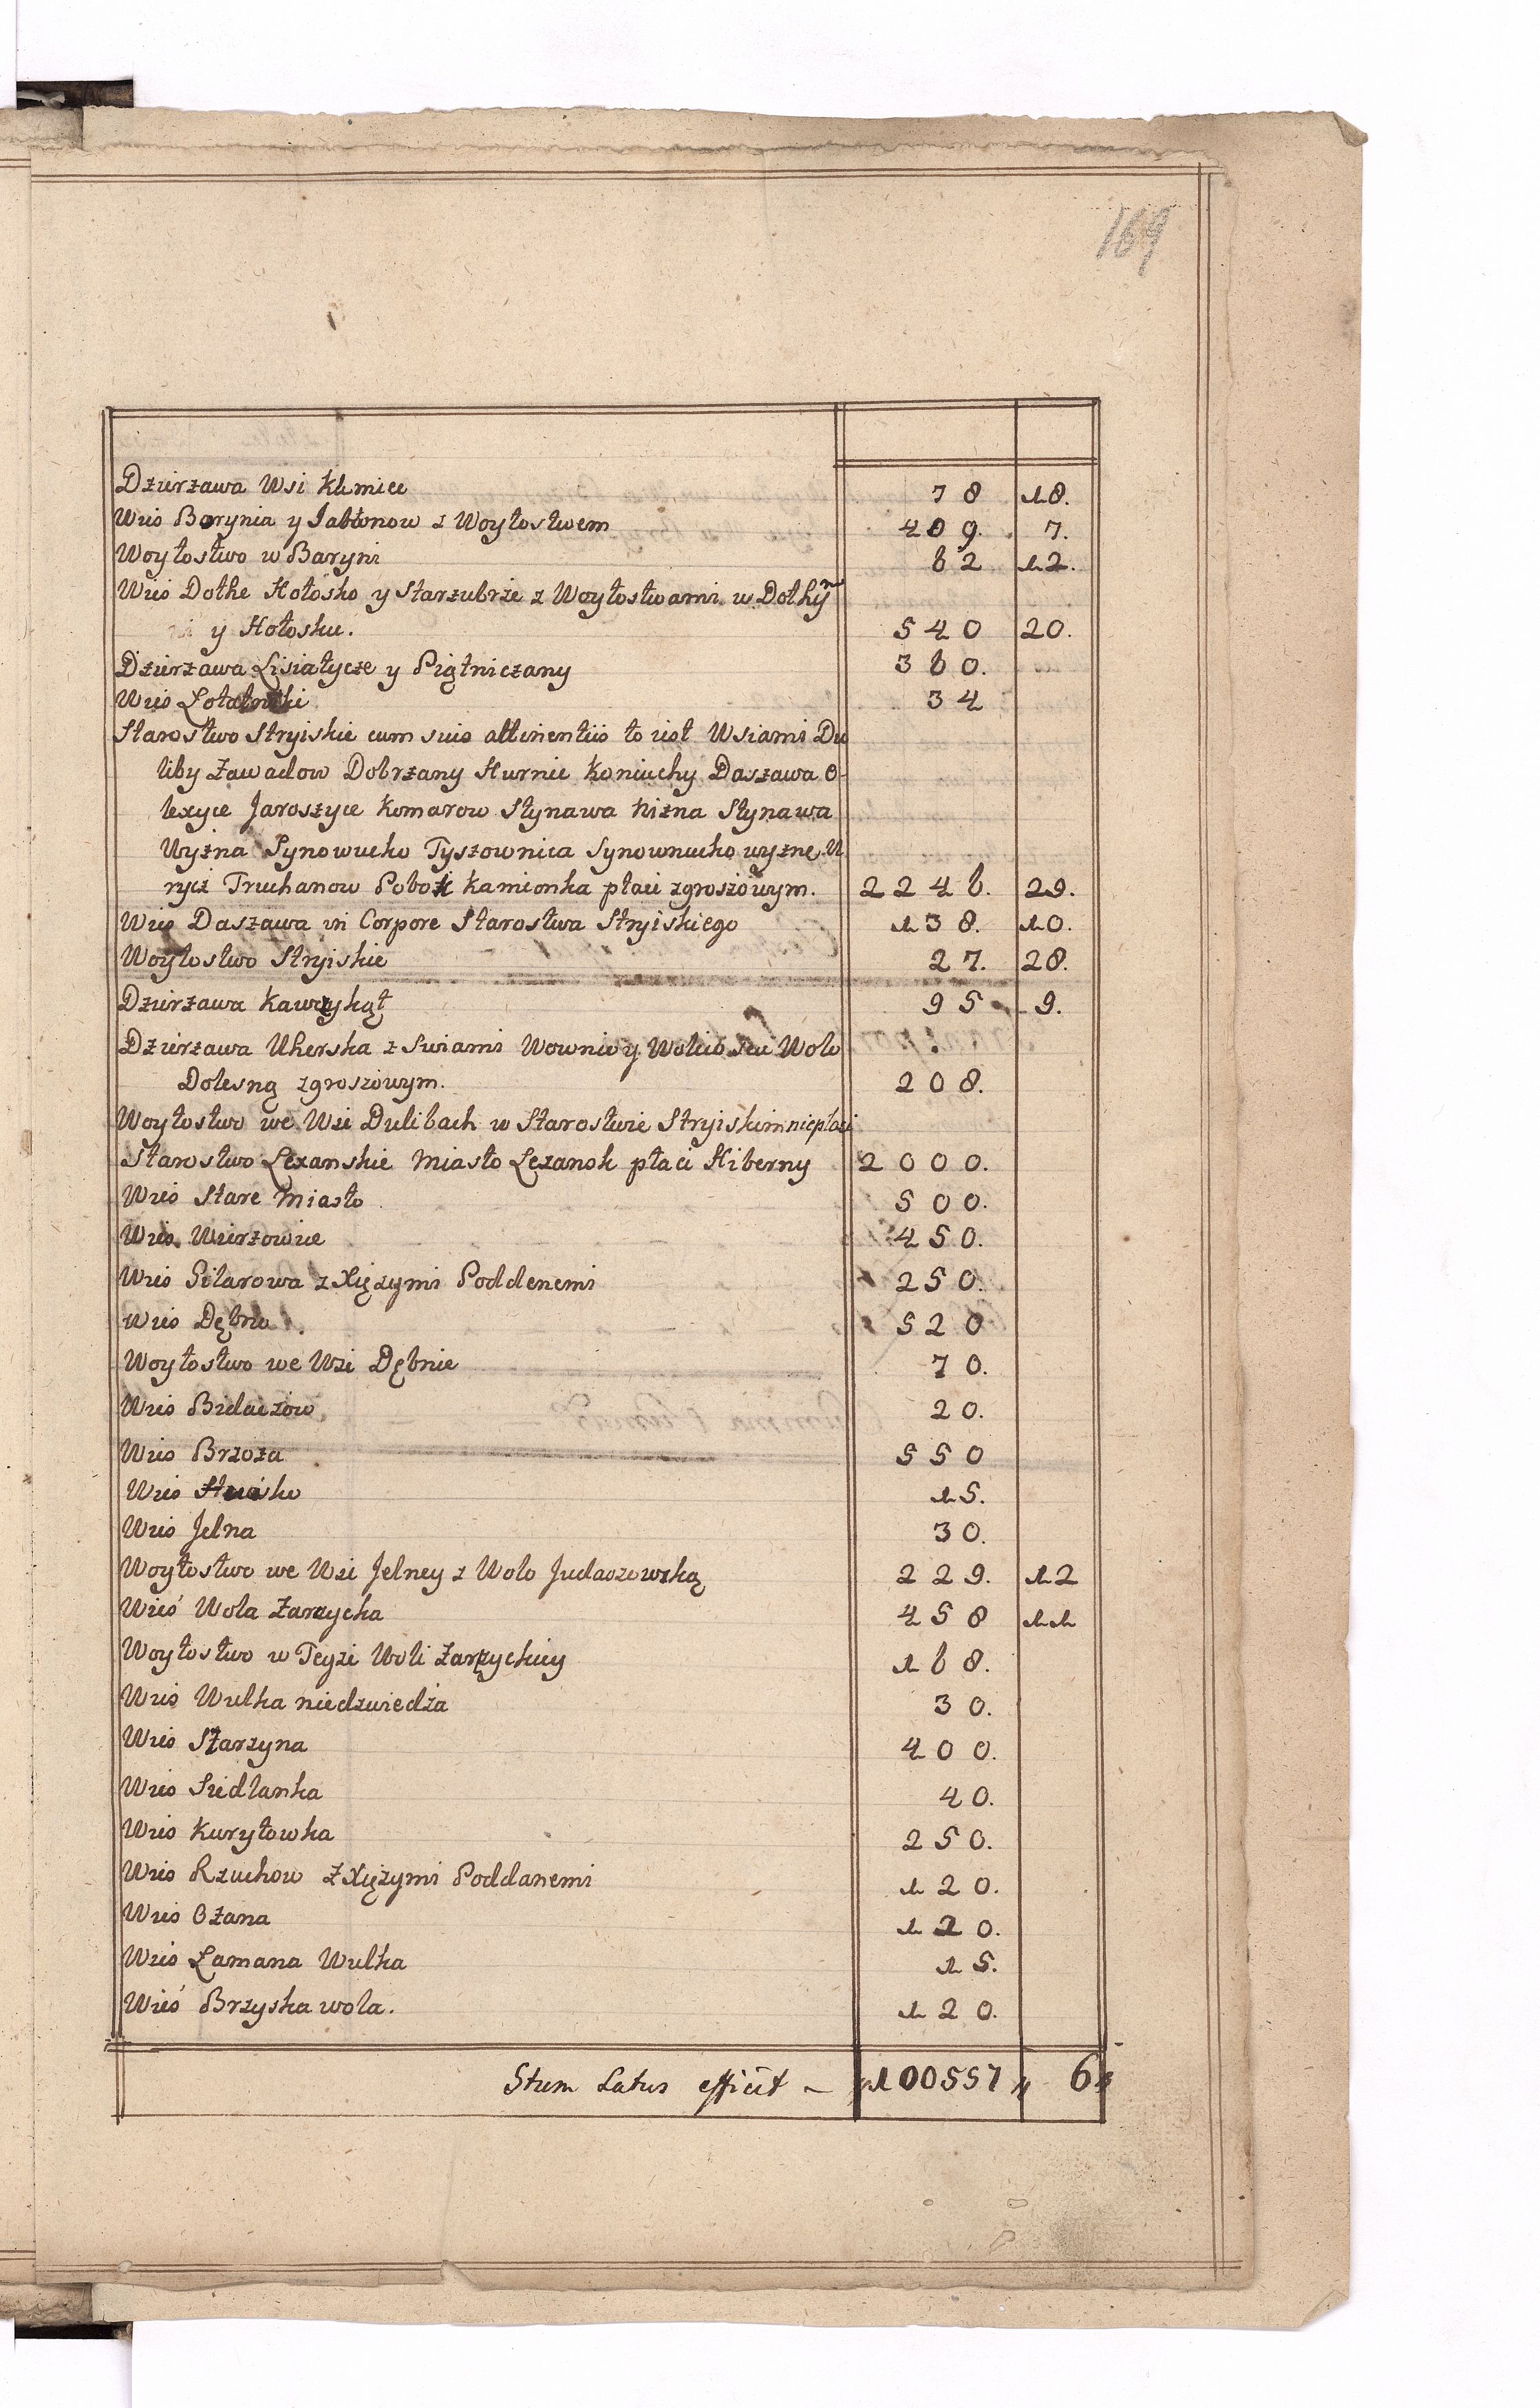 169
Dzierzawa Wsi Klimiec 78 18.
Wieś Barynia y Jabłonow z Woytostwem 409. 7.
Woytostwo w Baryni 62 12.
Wieś Dołhe Hołosko y Starzubrze z Woytostwami w Dołhy
y Hołosku. 540 20.
Dzierzawa Lisiatycze y Piątniczany 360.
Wieś Łotatniki 34
Starostwo Stryiskie cum suis attinentiis to iest Wsiami Du
liby Zawadow Dobrzany Hurnie Koniuchy Daszawa O-
lexyce Jaroszyce Komarow Stynawa Nizna Stynawa
Wyzna Synowucko Tyszownica Synowucko wyzne U
rycz Truchanow Pobok Kamionka płaci zgroszowym. 2246. 29.
Wieś Daszawa in Corpore Starostwa Stryiskiego 138. 10.
Woytostwo Stryiskie 27. 28.
Dzierzawa Kawczykąt 95 9.
Dzierzawa Uherska z Swiami Wownie y Wolicó seu Wolo
Dolesną zgroszowym. 208.
Woytostwo we Wsi Dulibach w Starostwie Stryiskim niepłaci
Starostwo Lezanskie Miasto Lezansk płaci Hiberny 2000.
Wieś Stare Miasto 500.
Wieś Wierzawice 450.
Wieś Gilarowa z Xiężymi Poddenemi 250.
Wieś Dębno 520
Woytostwo we Wsi Dębnie 70.
Wieś Bidaczow 20.
Wieś Brzoza 550
Wieś 15.
Wieś Jelna 30.
Woytostwo we Wsi Jelney z Wolo Judaszowską 229. 12
Wieś Wola Zarzycka 458 11
Woytostwo w Teyze Woli Zarzyckiey 168.
Wieś Wulka niedzwiedza 30.
Wieś Starzyna 400.
Wieś Siedlanka 40.
Wieś Kuryłowka 250.
Wieś Rzuchow z Xiężymi Poddanemi 120.
Wieś Ozana 120.
Wieś Łamana Wulka 15.
Wieś Brzyska wola. 120.
Stum Latus efficit – 100557 „ 6„